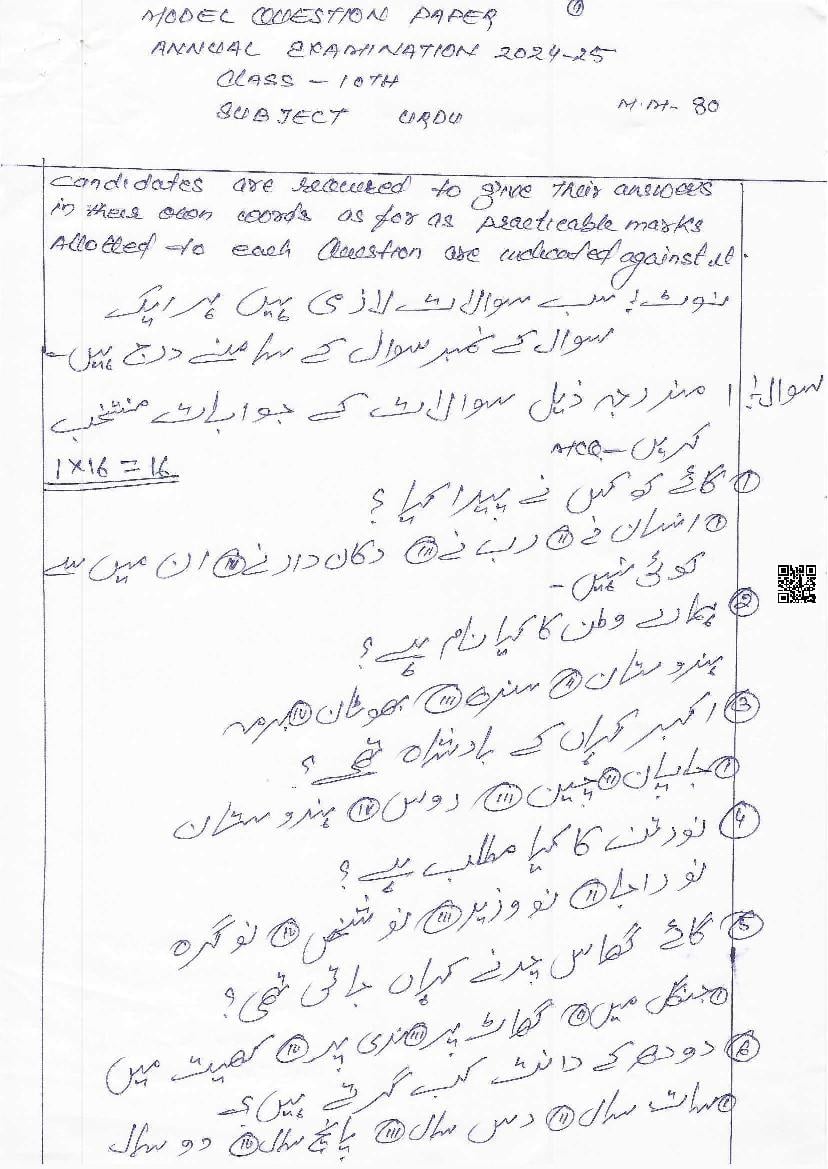 MODEL QUESTION PAPER ①
ANNUAL EXAMINATION 2024-25
CLASS - 10TH
SUBJECT URDU M.M- 80
Candidates are required to give their answers
in their own words as far as practicable marks
Allotted to each Question are indicated against it.
نوٹ: سب سوالات لازمی ہیں ہر ایک
سوال کے نمبر سوال کے سامنے درج ہیں۔
سوال: ا مندرجہ ذیل سوالات کے جوابات منتخب
کریں - MCQ
1×16 = 16
① گائے کو کس نے پیدا کیا؟
① انسان نے ⑪ رب نے ⑪ⅰ دکان دار نے ⓘⓥ ان میں سے
کوئی نہیں -
② ہمارے وطن کا کیا نام ہے؟
ہندوستان (ii) سندھ (iii) بھوٹان (iv) برمہ
③ اکبر کہاں کے بادشاہ تھے؟
(i) جاپان (ii) چین (iii) روس (iv) ہندوستان
④ نورتن کا کیا مطلب ہے؟
نو راجا (ii) نو وزیر (iii) نو شخص (iv) نو گرہ
⑤ گائے گھاس چرنے کہاں جاتی تھی؟
(i) جنگل میں (ii) گھاٹ پر (iii) ندی پر (iv) کھیت میں
⑥ دودھ کے دانت کب گرتے ہیں؟
(i) سات سال (ii) دس سال (iii) پانچ سال (iv) دو سال